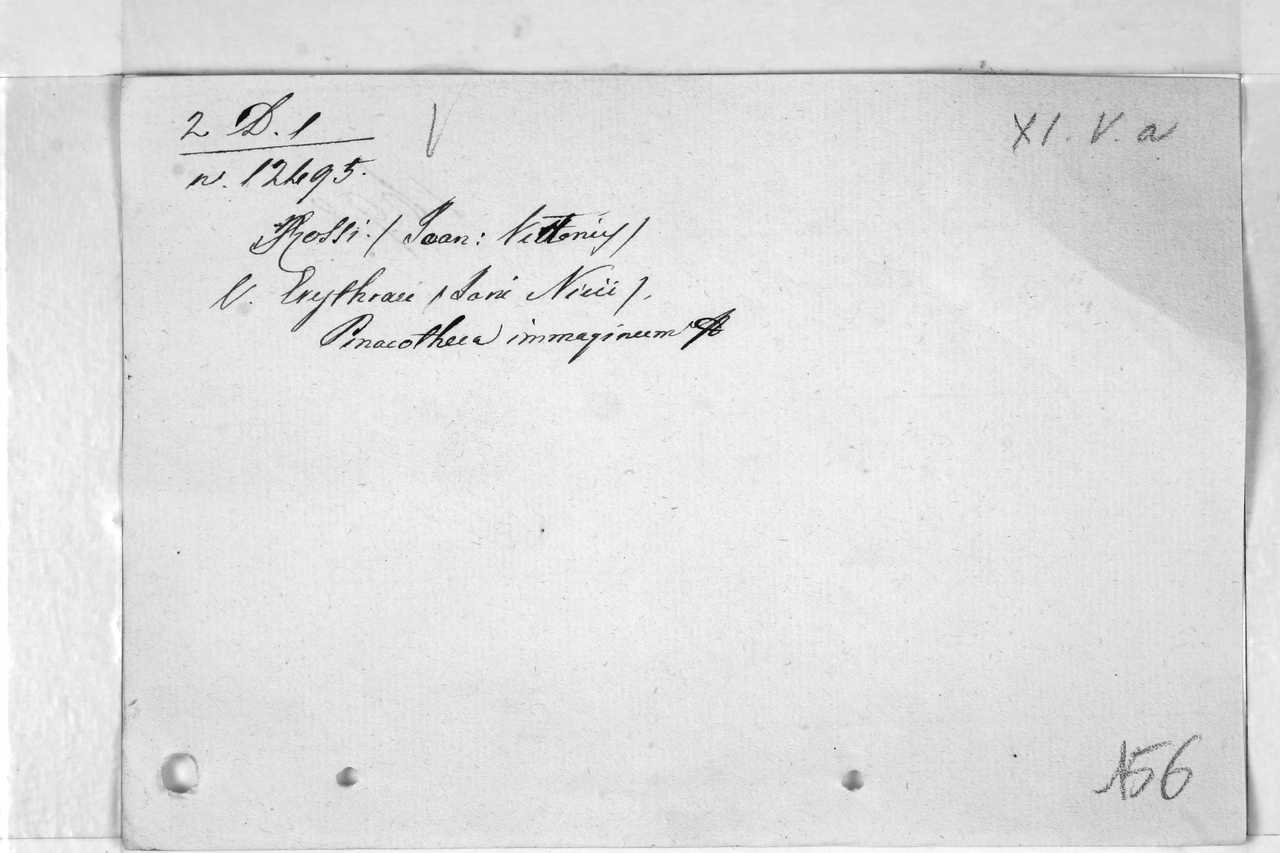 2 D. 1
V
XI. V. a
n. 12495.
Rossi. (Joan: Vittorii)
V. Erythraei (Jani Nicii).
Pinacotheca immaginum
156